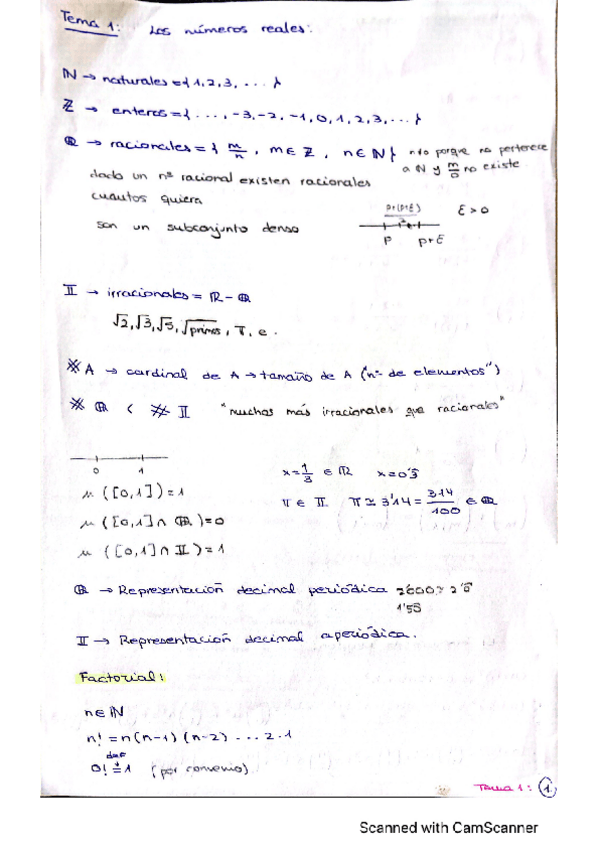 Tema 1: Los números reales:
ℕ → naturales = { 1, 2, 3, ... }
ℤ → enteros = { ..., -3, -2, -1, 0, 1, 2, 3, ... }
ℚ → racionales = { m/n , m ∈ ℤ , n ∈ ℕ } n≠0 porque no pertenece
a ℕ y m/0 no existe
dado un nº racional existen racionales
cuantos quiera
son un subconjunto denso
ε > 0
p p+ε
𝕀 → irracionales = ℝ - ℚ
√2, √3, √5, √primos, π, e.
# A → cardinal de A → tamaño de A ("nº de elementos")
# ℚ < # 𝕀 "muchos más irracionales que racionales"
0 1
μ ([0,1]) = 1
μ ([0,1] ∩ ℚ) = 0
μ ([0,1] ∩ 𝕀) = 1
x = 1/3 ∈ ℝ x = 0'3
π ∈ 𝕀 π ≃ 3'14 = 314/100 ∈ ℚ
ℚ → Representación decimal periódica
𝕀 → Representación decimal aperiódica.
Factorial:
n ∈ ℕ
n! = n (n-1) (n-2) ... 2 · 1
0! = 1 (por convenio)
Tema 1: 1
Scanned with CamScanner